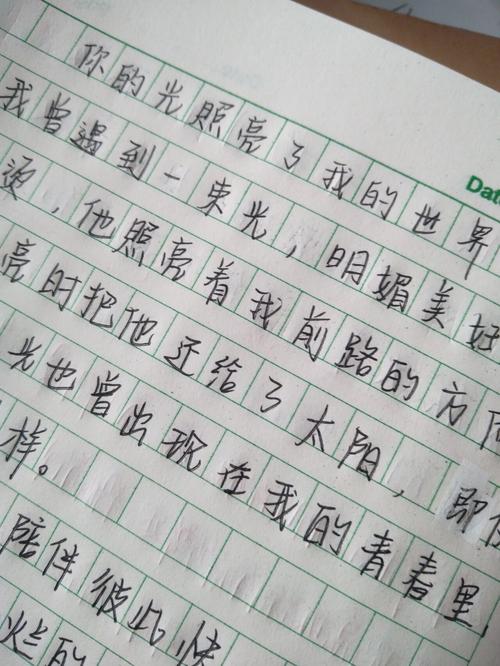 你的光照亮了我的世界
Date
我曾遇到一束光，明媚美好
烫，他照亮着我前路的方向
亮时把他还给了太阳，即使
光也曾出现在我的青春里
样。
陪伴彼此，快
烂的